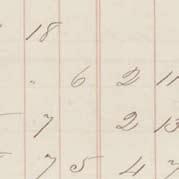 18
" 6 2 11
7 2 13
7 5 4 7